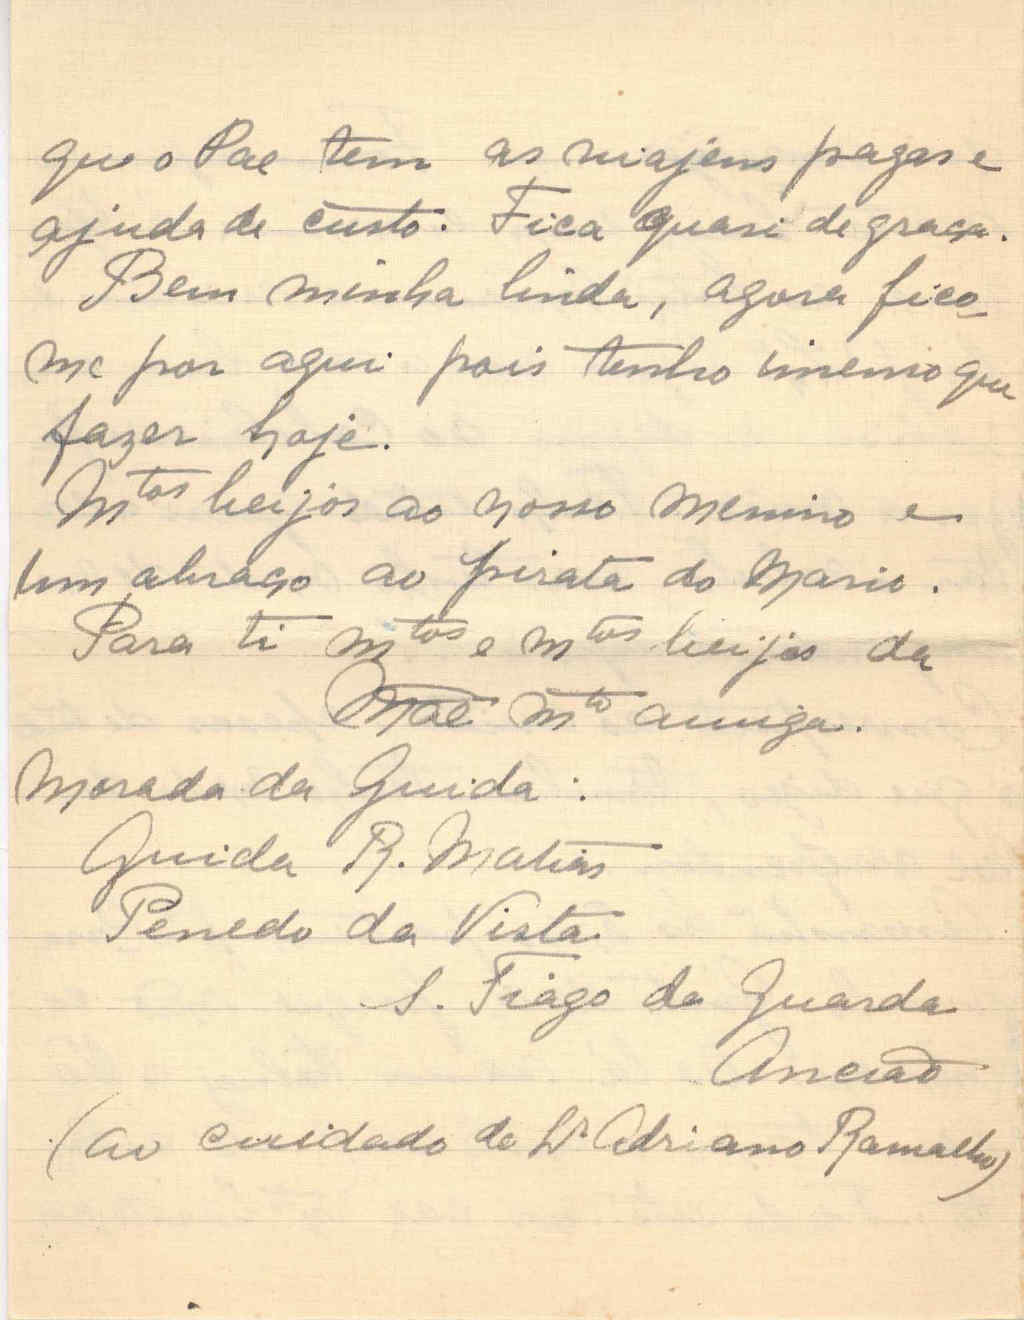 que o Pae tem as viajens pagas e
ajuda de custo. Fica quasi de graça.
Bem minha linda, agora fico
me por aqui pois tenho imenso que
fazer hoje.
Mtos beijos ao nosso menino e
um abraço ao pirata do Mario.
Para ti mtos e mtos beijos da
Mãe mto amiga.
Morada da Guida:
Guida R. Matias
Penedo da Vista
S. Tiago da Guarda
Ancião
(ao cuidado de Dr. Adriano Ramalho)